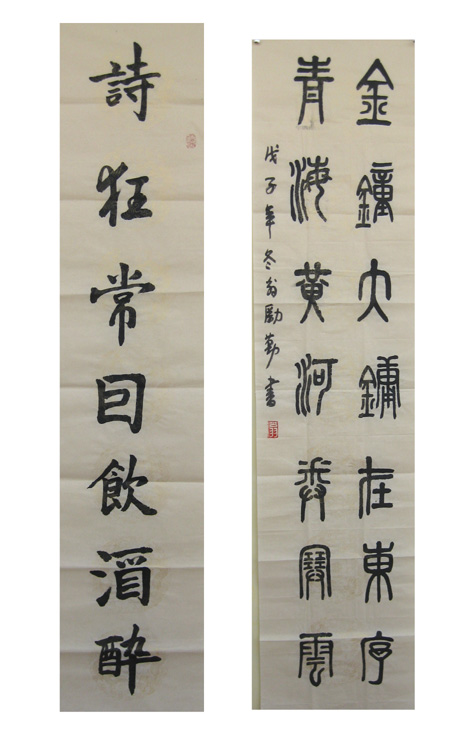 金鐘大鏞在東序
青海黃河卷塞雲
戊子年冬翁勵勤書
詩狂常囙飲酒醉